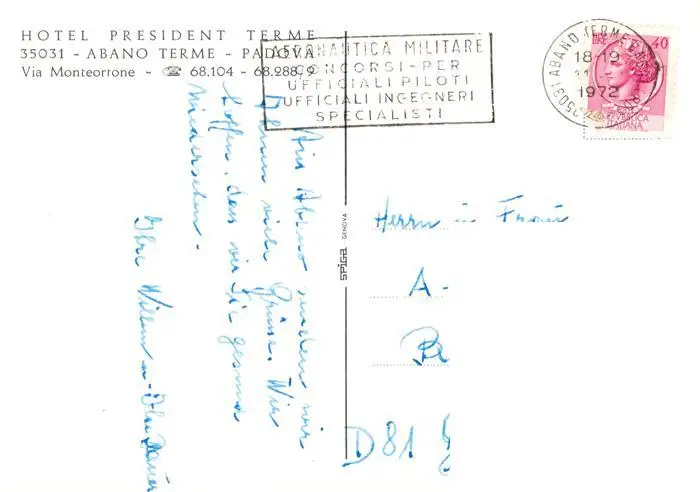 HOTEL PRESIDENT TERME
35031 - ABANO TERME - PADOVA
Via Monteortone - ☎ 68.104 - 68.288/9
AERONAUTICA MILITARE
CONCORSI PER
UFFICIALI PILOTI
UFFICIALI INGEGNERI
SPECIALISTI
35031 ABANO TERME
18-19
1972
LIRE 40
REPUBBLICA
ITALIANA
Aus Abano senden wir
Ihnen viele Grüsse. Wir
hoffen, dass wir Sie gesund
wiedersehen.
Ihre
SPIGA GENOVA
Herrn u Frau
A-
D 81